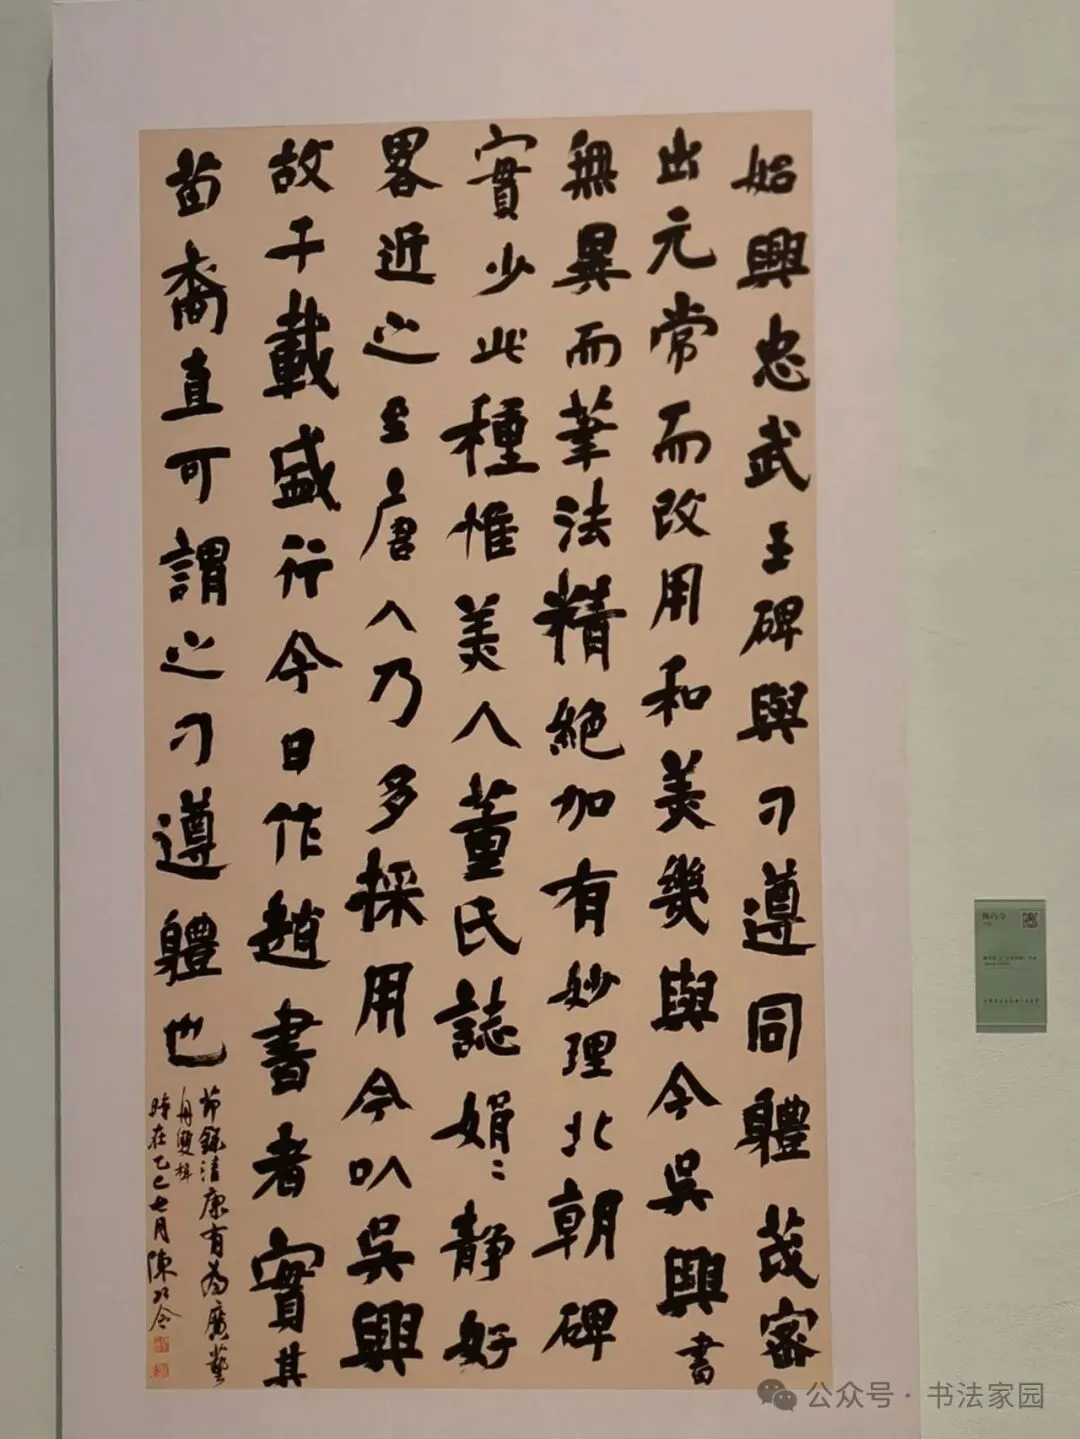 始興忠武王碑與刁遵同體茂密
出元常而改用和美幾與今吳興書
無異而筆法精絕加有妙理北朝碑
實少此種惟美人董氏誌娟〻靜好
畧近之至唐人乃多採用今以吳興
故千載盛行今日作趙書者實其
苗裔直可謂之刁遵體也
節錄清康有為廣藝
舟雙楫
時在乙巳七月陳巧令
公众号·书法家园